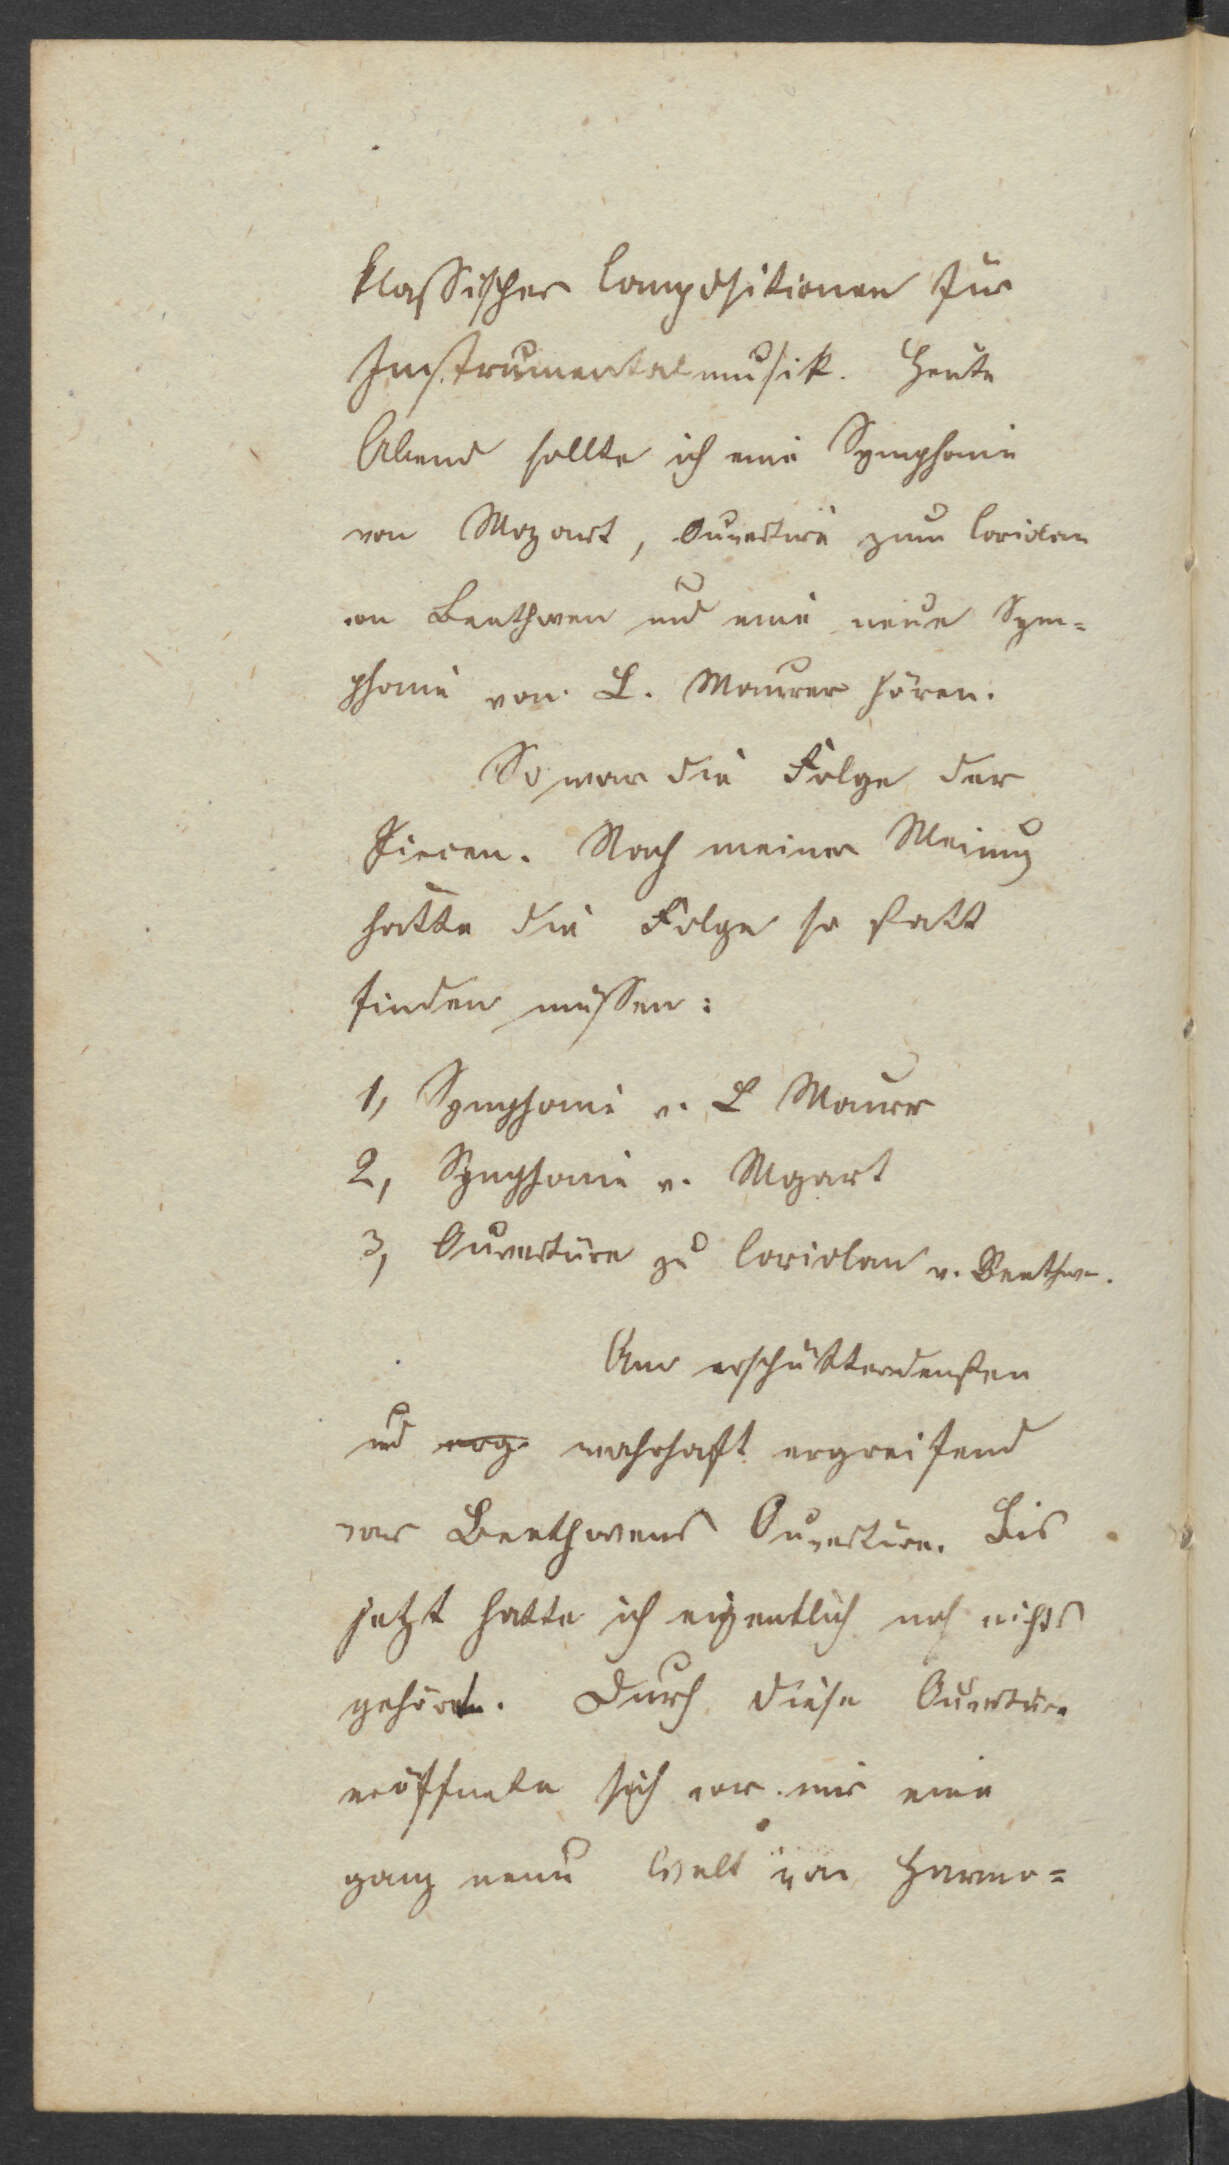 klassischer Compositionen für
Instrumentalmusik. Heute
Abend sollte ich eine Symphonie
von Mozart, Ouverture zum Coriolan
von Beethoven und eine neue Sym=
phonie von L. Maurer hören.
So war die Folge der
Piecen. Nach meiner Meinung
hätte die Folge so statt
finden müssen:
1, Symphonie v. L Maurer
2, Symphonie v. Mozart
3, Ouvertüre zu Coriolan v. Beethven.
Am erschütterndensten
und erg. wahrhaft ergreifend
war Beethovens Ouvertüre. Bis
jetzt hatte ich eigentlich noch nichts
gehört. Durch diese Ouverture
eröffnete sich vor mir eine
ganz neue Welt von Harmo=